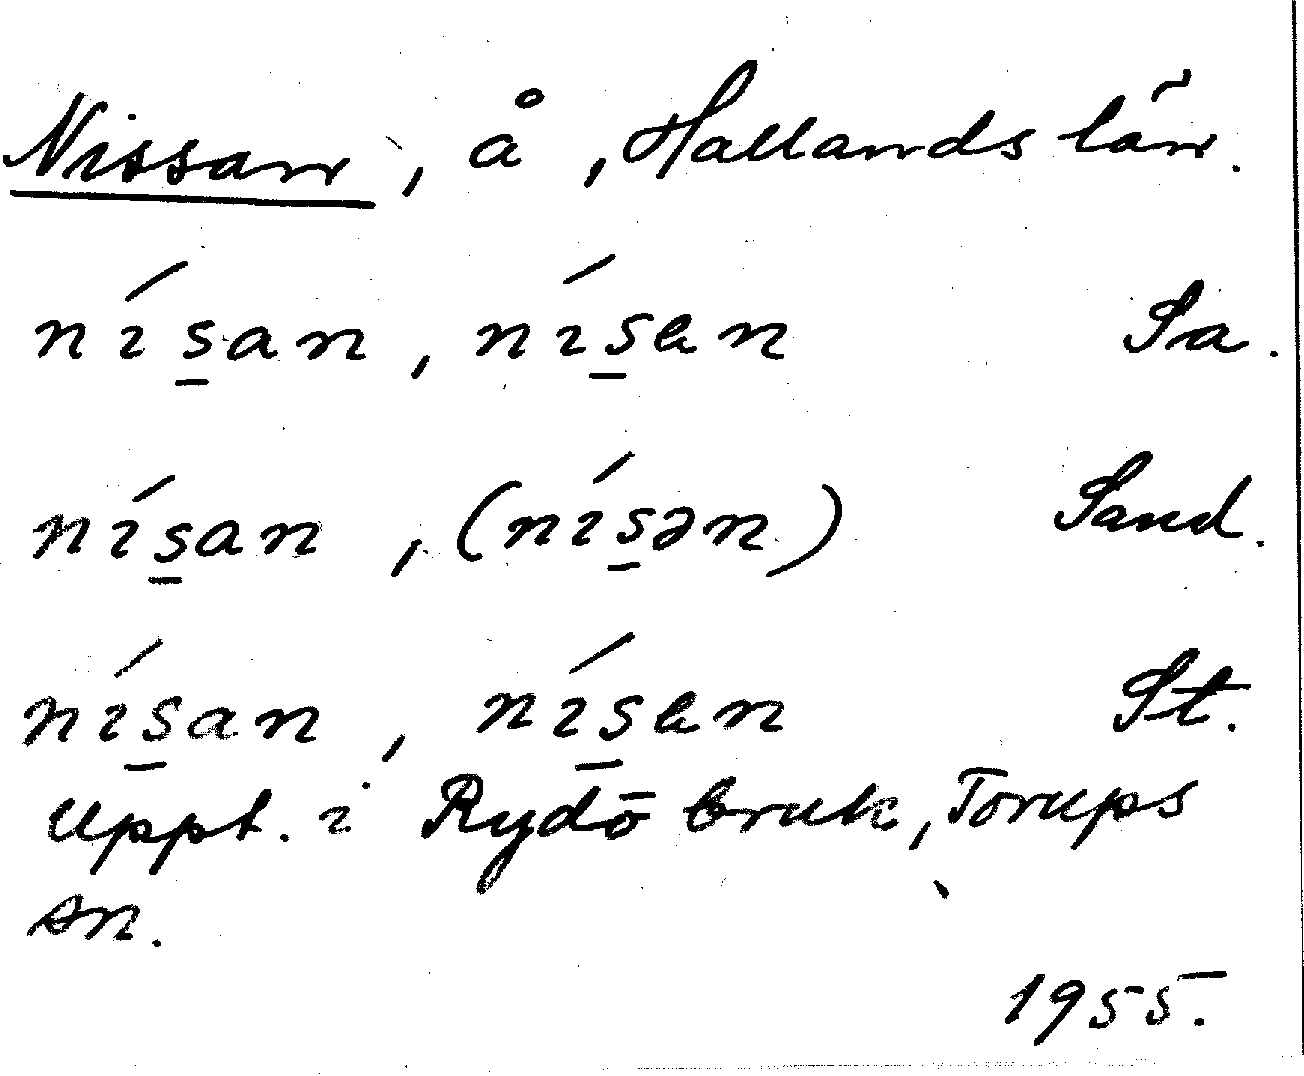 Nissan, å, Hallands län.
nı́s̠an, nı́s̠ɐn Sa.
nı́s̠an, (nı́s̠ən) Sand.
nı́s̠an, nı́s̠ɐn St.
Uppt. i Rydö bruk, Torups
sn.
1955.